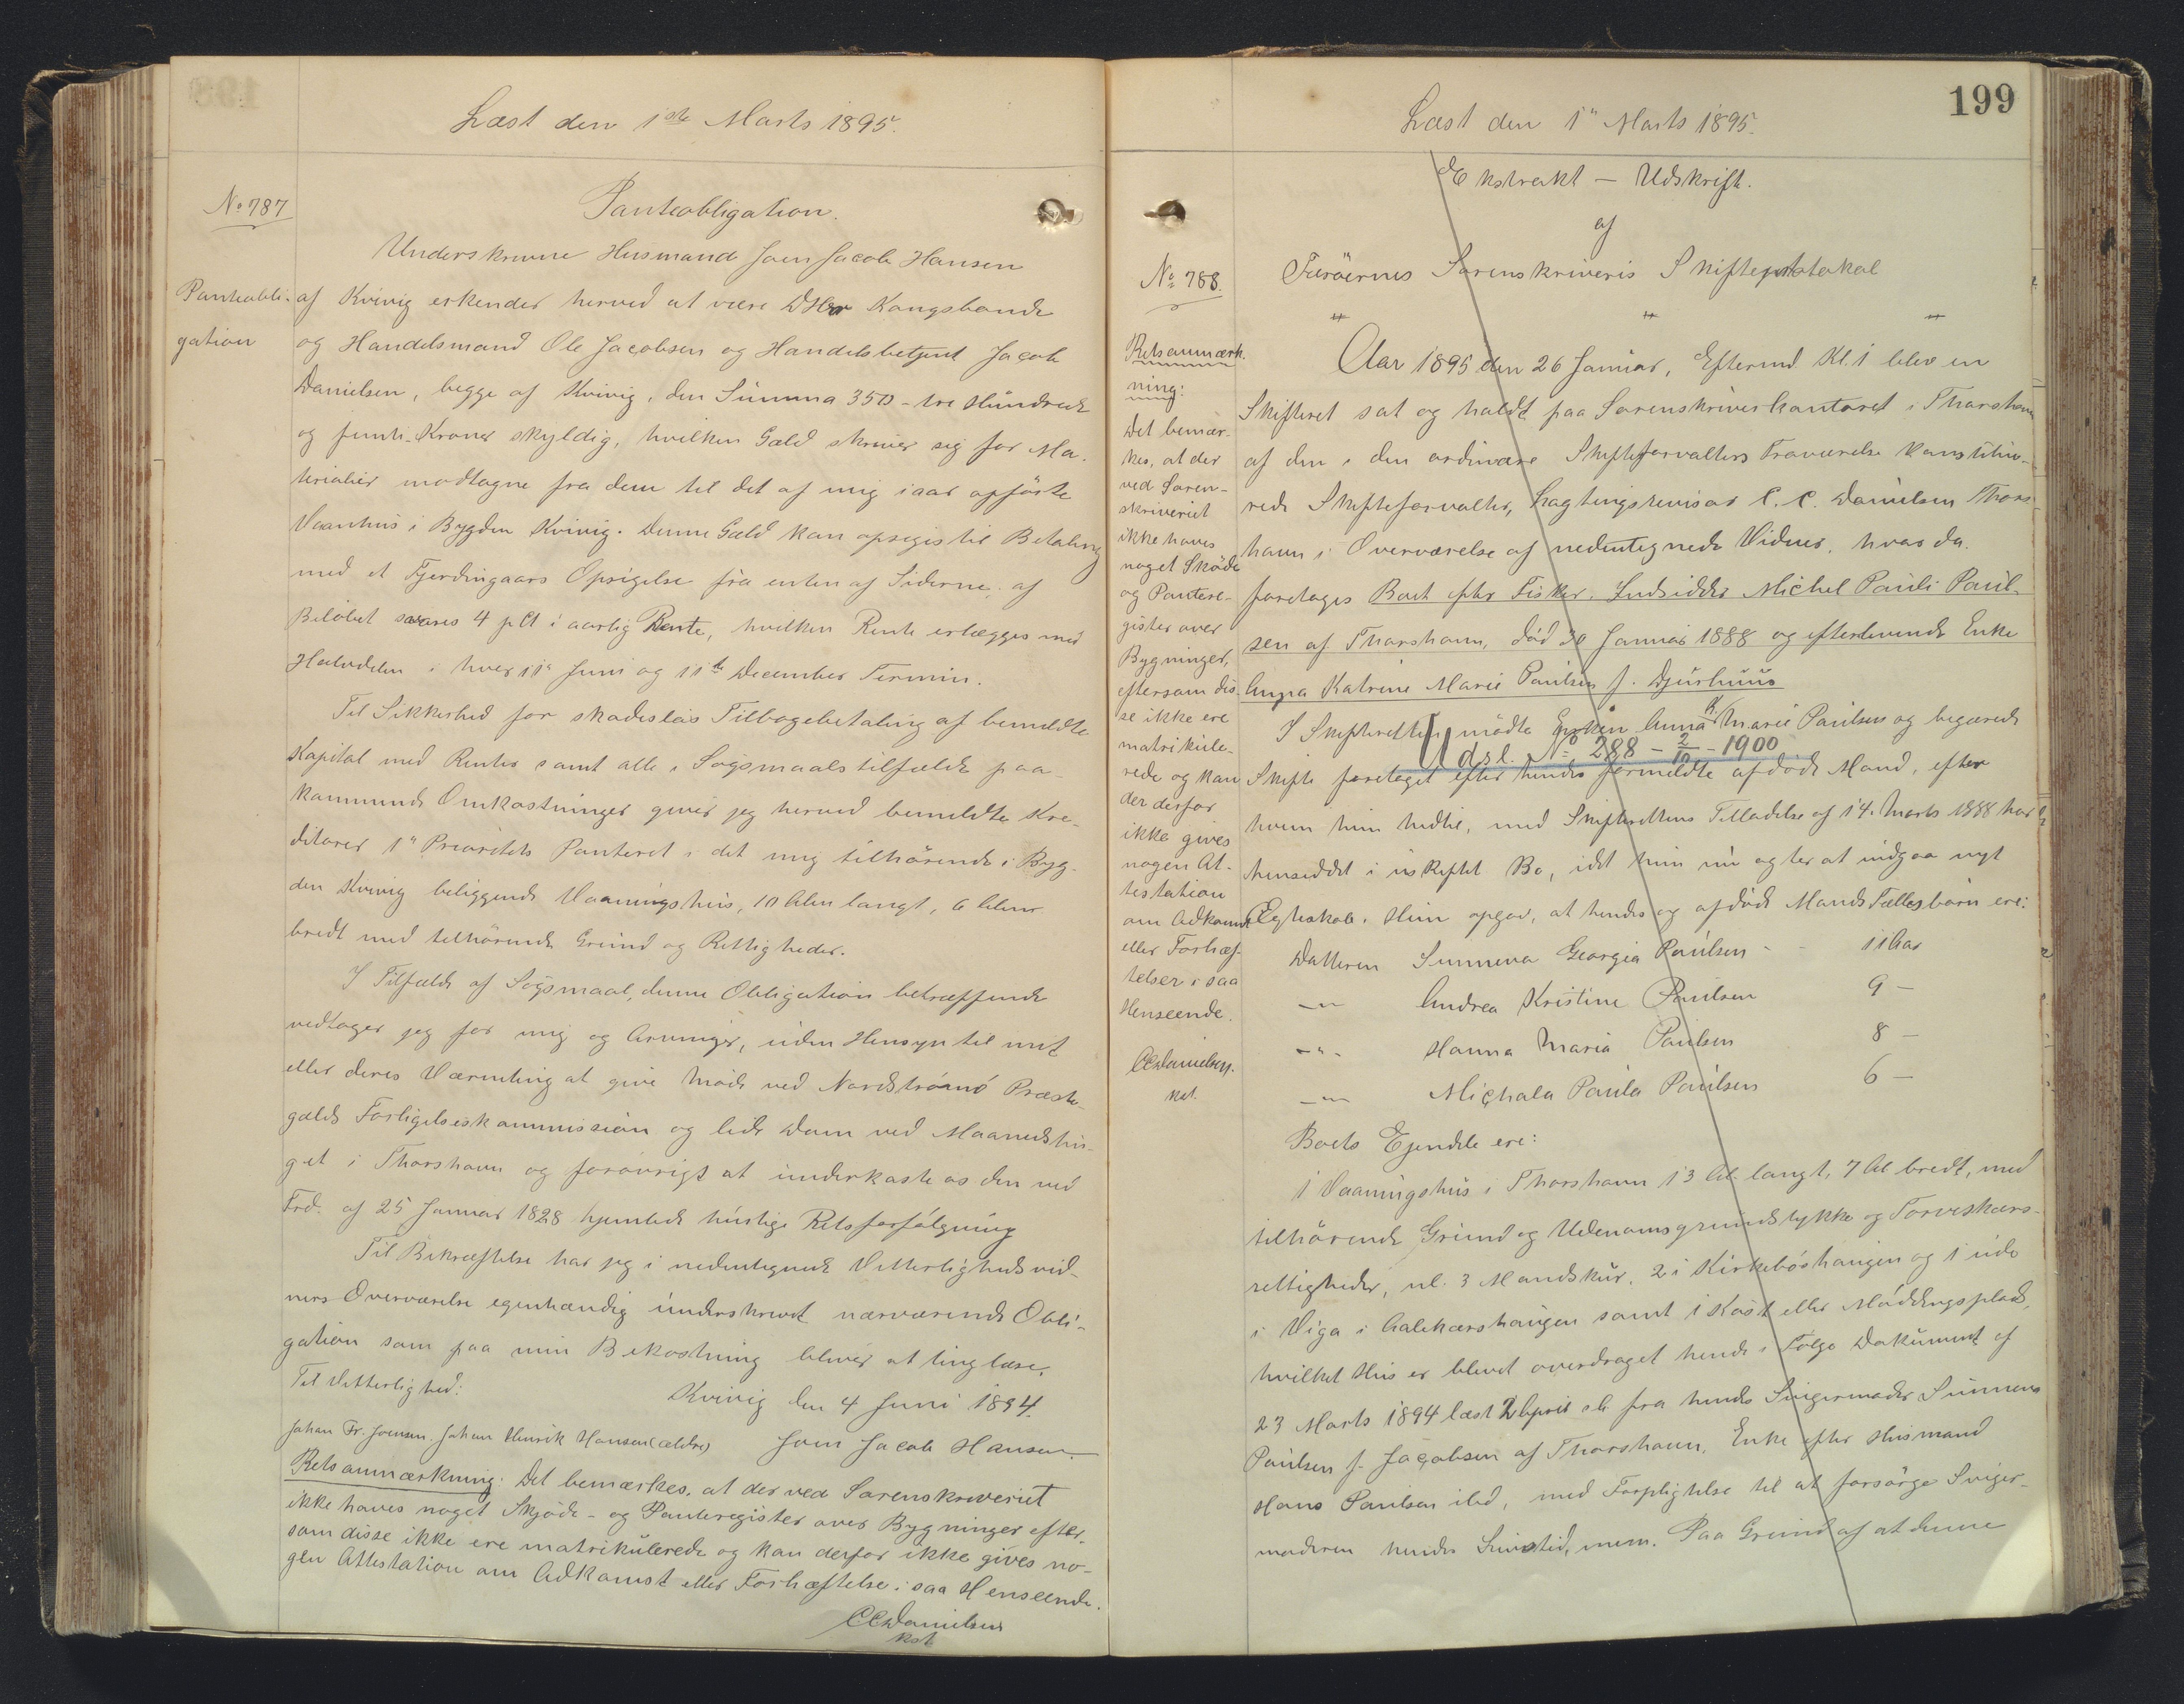 Læst den 1ste Marts 1895.
No 787
Panteobligation.
Underskrevne Husmand Joen Jacob Hansen
Panteobli-
gation
af Kvivig erkender herved at være DHrr Kongsbonde
og Handelsmand Ole Jacobsen og Handelsbetjent Jacob
Danielsen, begge af Kvivig, den Summa 350 - tre Hundrede
og femti - Kroner skyldig, hvilken Gæld skriver sig for Ma-
terialier modtagne fra dem til det af mig iaar opförte
Vaanhus i Bygden Kvivig. Denne Gæld kan opsiges til Betaling
med et Fjerdingaars Opsigelse fra enten af Siderne; af
Belöbet svares 4 pCt i aarlig Rente, hvilken Rente erlægges med
Halvdelen i hver 11te Juni og 11te December Termin.
Til Sikkerhed for skadeslös Tilbagebetaling af bemeldte
Kapital med Renter samt alle i Sögsmaalstilfælde paa-
kommende Omkostninger giver jeg herved bemeldte Kre-
ditorer 1ste Prioritets Panteret i det mig tilhörende i Byg-
den Kvivig beliggende Vaaningshus, 10 Alen langt, 6 Alen
bredt med tilhörende Grund og Rettigheder.
I Tilfælde af Sögsmaal, denne Obligation betræffende
vedtager jeg for mig og Arvinger, uden Hensyn til mit
eller deres Værneting at give Möde ved Nordströmö Præste-
gælds Forligelseskommission og lide Dom ved Maanedsthin-
get i Thorshavn og forövrigt at underkaste os den ved
Frd. af 25 Januar 1828 hjemlede hurtige Retsforfölgning
Til Bekræftelse har jeg i nedentegnede Vitterlighedsvid-
ners Overværelse egenhændig underskrevet nærværende Obli-
gation som paa min Bekostning bliver at tinglæse.
Kvivig den 4 Juni 1894.
Til Vitterlighed:
Johan Fr. Joensen. Johan Henrik Hansen (ældre) Joen Jacob Hansen
Retsanmærkning: Det bemærkes, at der ved Sorenskriveriet
ikke haves noget Skjöde- og Panteregister over Bygninger efter-
som disse ikke ere matrikulerede og kan derfor ikke gives no-
gen Attestation om Adkomst eller Forhæftelse i saa Henseende.
CCDanielsen
kst
199
Læst den 1" Marts 1895.
Ekstrakt - Udskrift.
af
Færöernes Sorenskriveris Skifteprotokol
No 788.
Retsanmærk-
ning:
Det bemær-
kes, at der
ved Soren-
skriveriet
ikke haves
noget Sköde
og Pantere-
gister over
Bygninger,
eftersom dis-
se ikke ere
matrikule-
rede og kan
der derfor
ikke gives
nogen At-
testation
om Adkomst
eller Forhæf-
telser i saa
Henseende.
CCDanielsen.
kst.
Aar 1895 den 26 Januar, Eftermd Kl. 1 blev en
Skifteret sat og holdt paa Sorenskriverkontoret i Thorshavn
af den i den ordinære Skifteforvalters Fraværelse konstitue-
rede Skifteforvalter, Lagtingsrevisor C. C. Danielsen Thors-
havn i Overværelse af nedentegnede Vidner, hvor da
foretoges Boet efter Fisker. Indsidder Michel Pauli Paul-
sen af Thorshavn, död 30 Januar 1888 og efterlevende Enke
Anna Katrine Marie Paulsen f. Djurhuus
I Skifteretten mödte Enken Anna K. Marie Paulsen og begærede
Udsl. No 288 - 2/10 - 1900
Skifte foretaget efter hendes formeldte afdöde Mand, efter
hvem hun hidtil, med Skifterettens Tilladelse af 14. Marts 1888 har
hensiddet i uskiftet Bo, idet hun nu agter at indgaa nyt
Ægteskab. Hun opgav, at hendes og afdöde Mands Fællesbörn ere:
Datteren Sunneva Georgia Paulsen - - 11 Aar
-"- Andrea Kristine Paulsen 9 -
-"- Hanna Maria Paulsen 8 -
-"- Michala Paula Paulsen 6 -
Boets Ejendele ere:
1 Vaaningshus i Thorshavn 13 Al. langt, 7 Al bredt, med
tilhörende Grund og Udenomsgrundstykke og Torveskærs-
rettigheder, nl. 3 Mandskur, 2 i Kirkeböshaugen og 1 ude
i Viga i Aalekærshaugen samt 1 Kast eller Möddingsplads,
hvilket Hus er blevet overdraget hende i Fölge Dokument af
23 Marts 1894 læst 2 April s.A. fra hendes Svigermoder Sunneva
Paulsen f. Jacobsen af Thorshavn, Enke efter Husmand
Hans Paulsen ibd, med Forpligtelse til at forsörge Sviger-
moderen hendes Livstid, m.m. Paa Grund af at denne